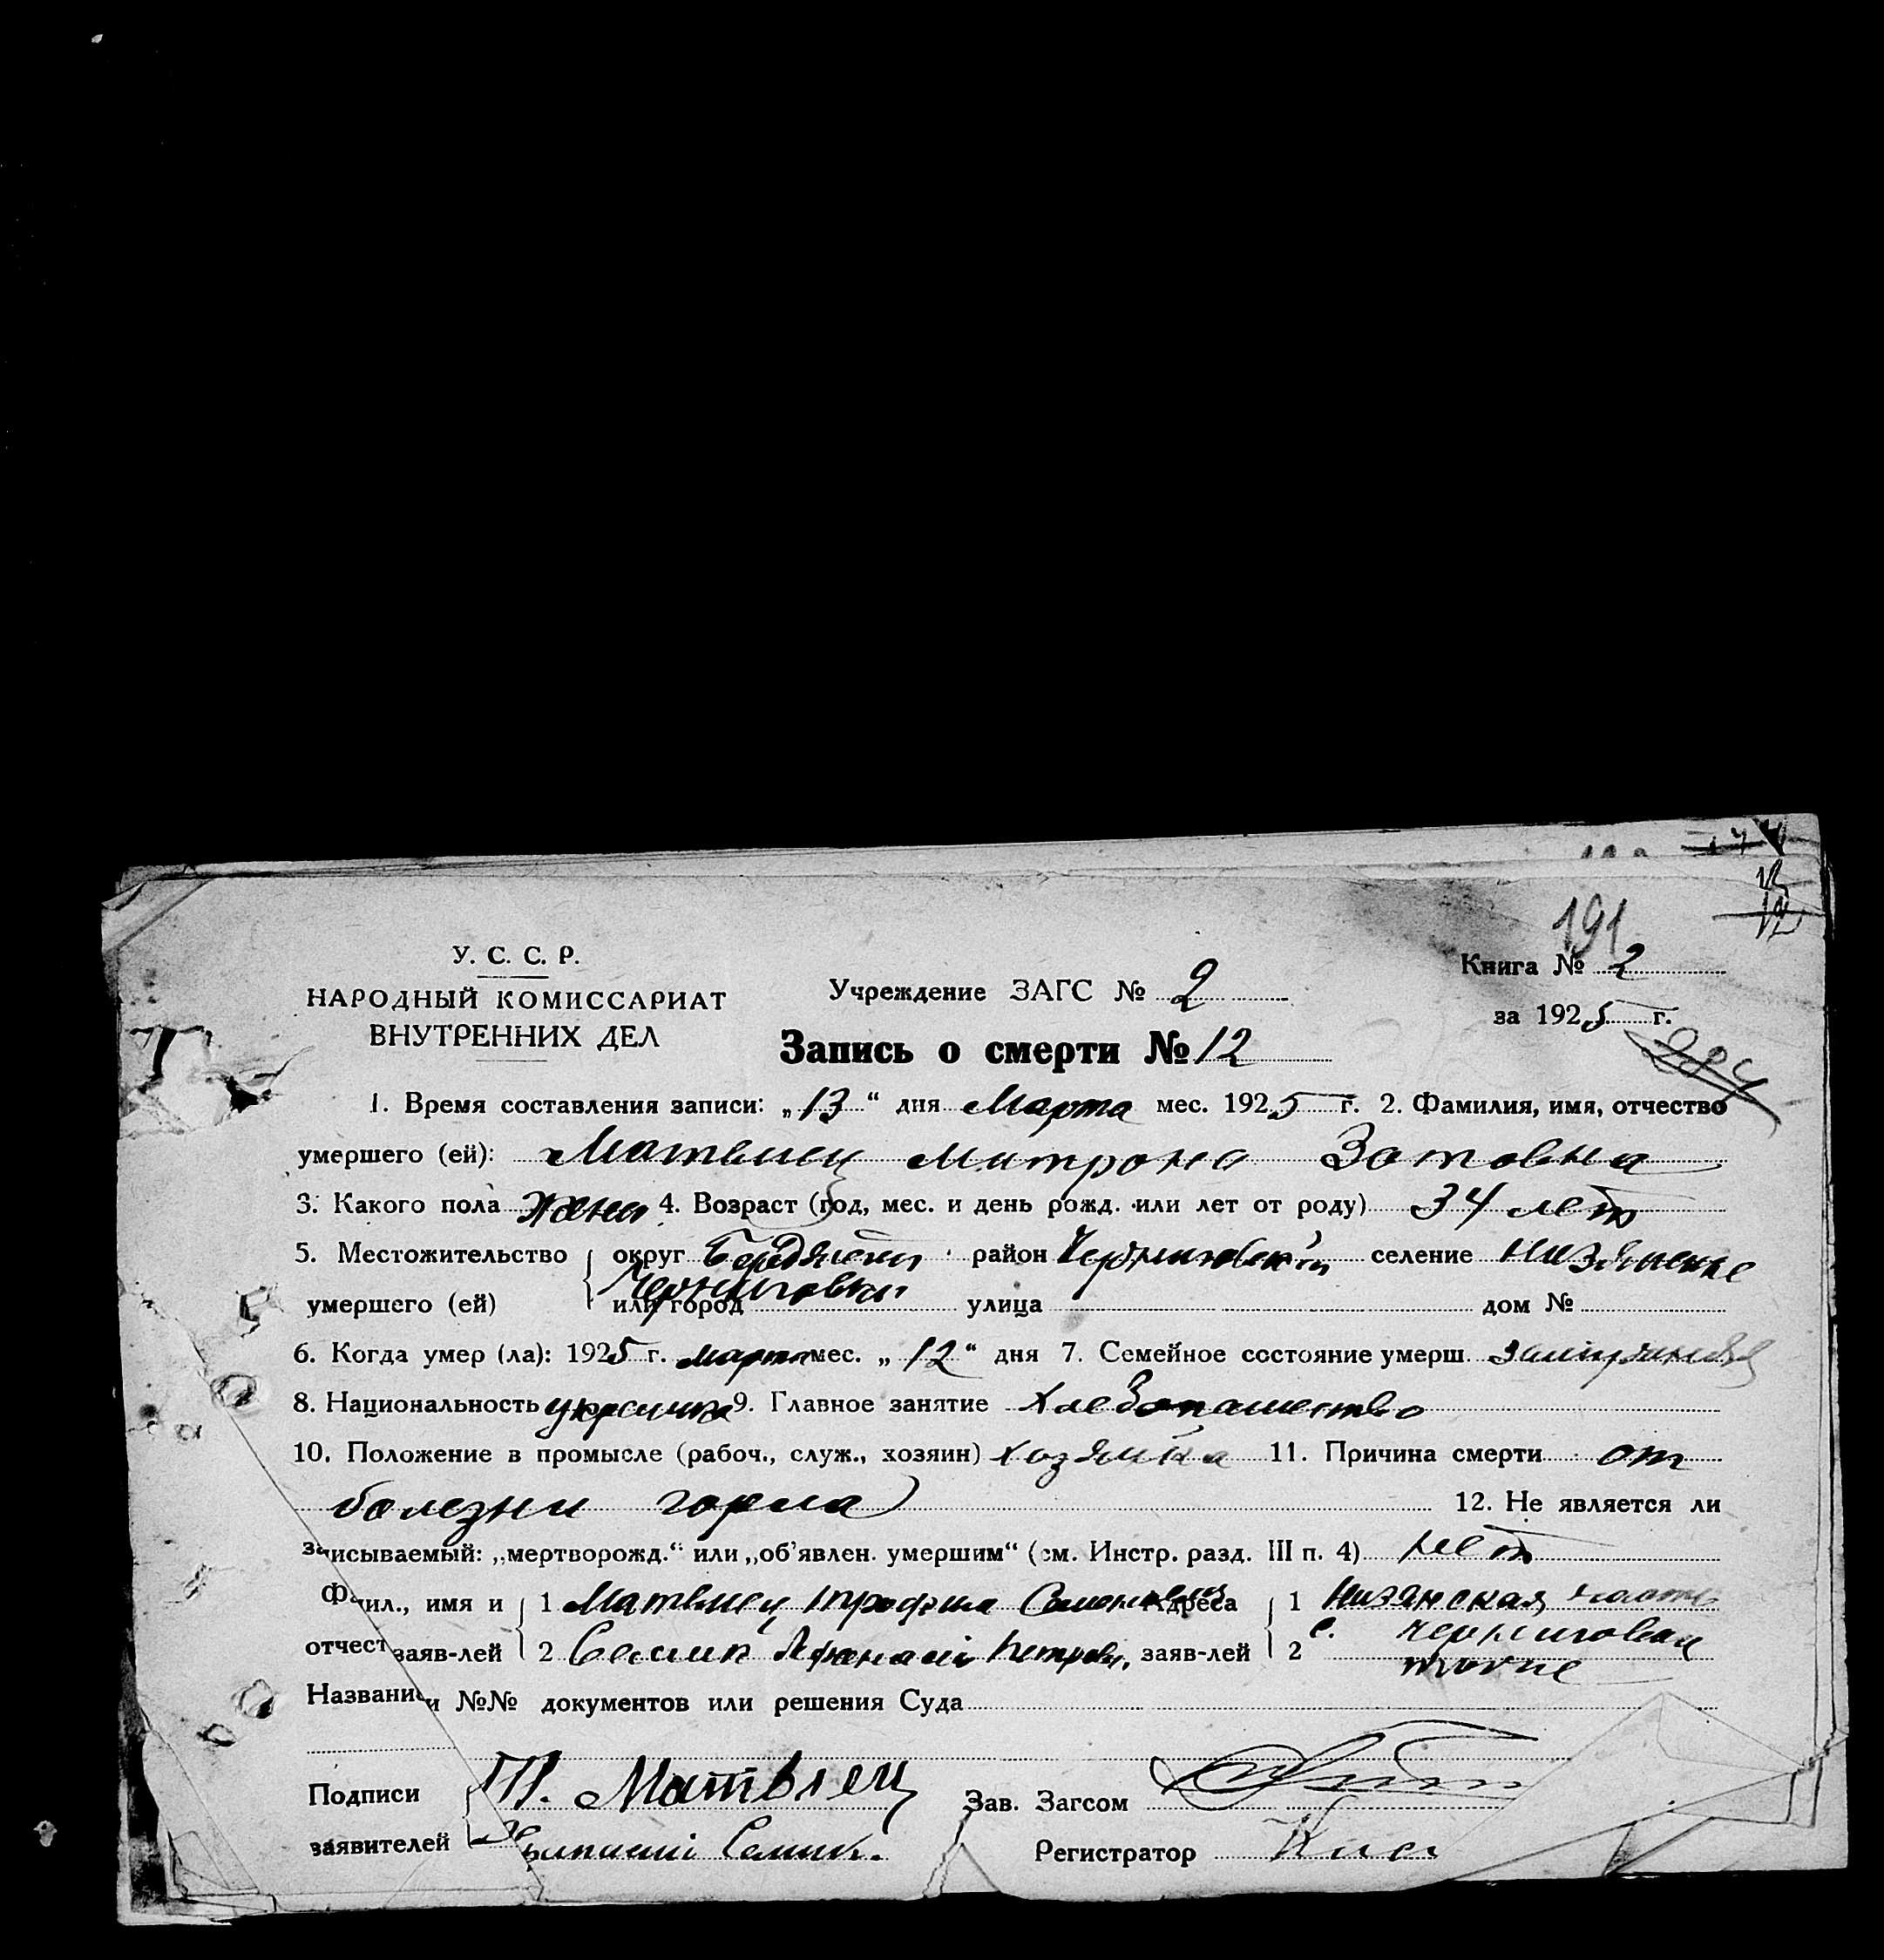 191
У. С. С. Р.
НАРОДНЫЙ КОМИССАРИАТ
ВНУТРЕННИХ ДЕЛ
Учреждение ЗАГС № 2
Книга № 2
за 1925 г.
Запись о смерти № 12
1. Время составления записи: „13“ дня Марта мес. 1925 г. 2. Фамилия, имя, отчество
умершего (ей): Матвиец Митрона Зотовна
3. Какого пола жена 4. Возраст (год, мес. и день рожд. или лет от роду) 34 лет
5. Местожительство округ район Черниговский селение
умершего (ей) или город Черниговки улица дом №
6. Когда умер (ла): 1925 г. марта мес. „12“ дня 7. Семейное состояние умерш.
8. Национальность 9. Главное занятие хлебопашество
10. Положение в промысле (рабоч., служ., хозяин) хозяйка 11. Причина смерти от
болезни горла 12. Не является ли
записываемый: „мертворожд.“ или „об’явлен. умершим“ (см. Инстр. разд. III п. 4) нет
Фамил., имя и 1 Матвиец Трофим Семенович Адреса 1 Низянская часть
с. Черниговки
отчест заяв-лей 2 Семик Афанасий Петров. заяв-лей 2 тоже
Название и №№ документов или решения Суда
Подписи Т. Матвіец Зав. Загсом
заявителей Семик. Регистратор